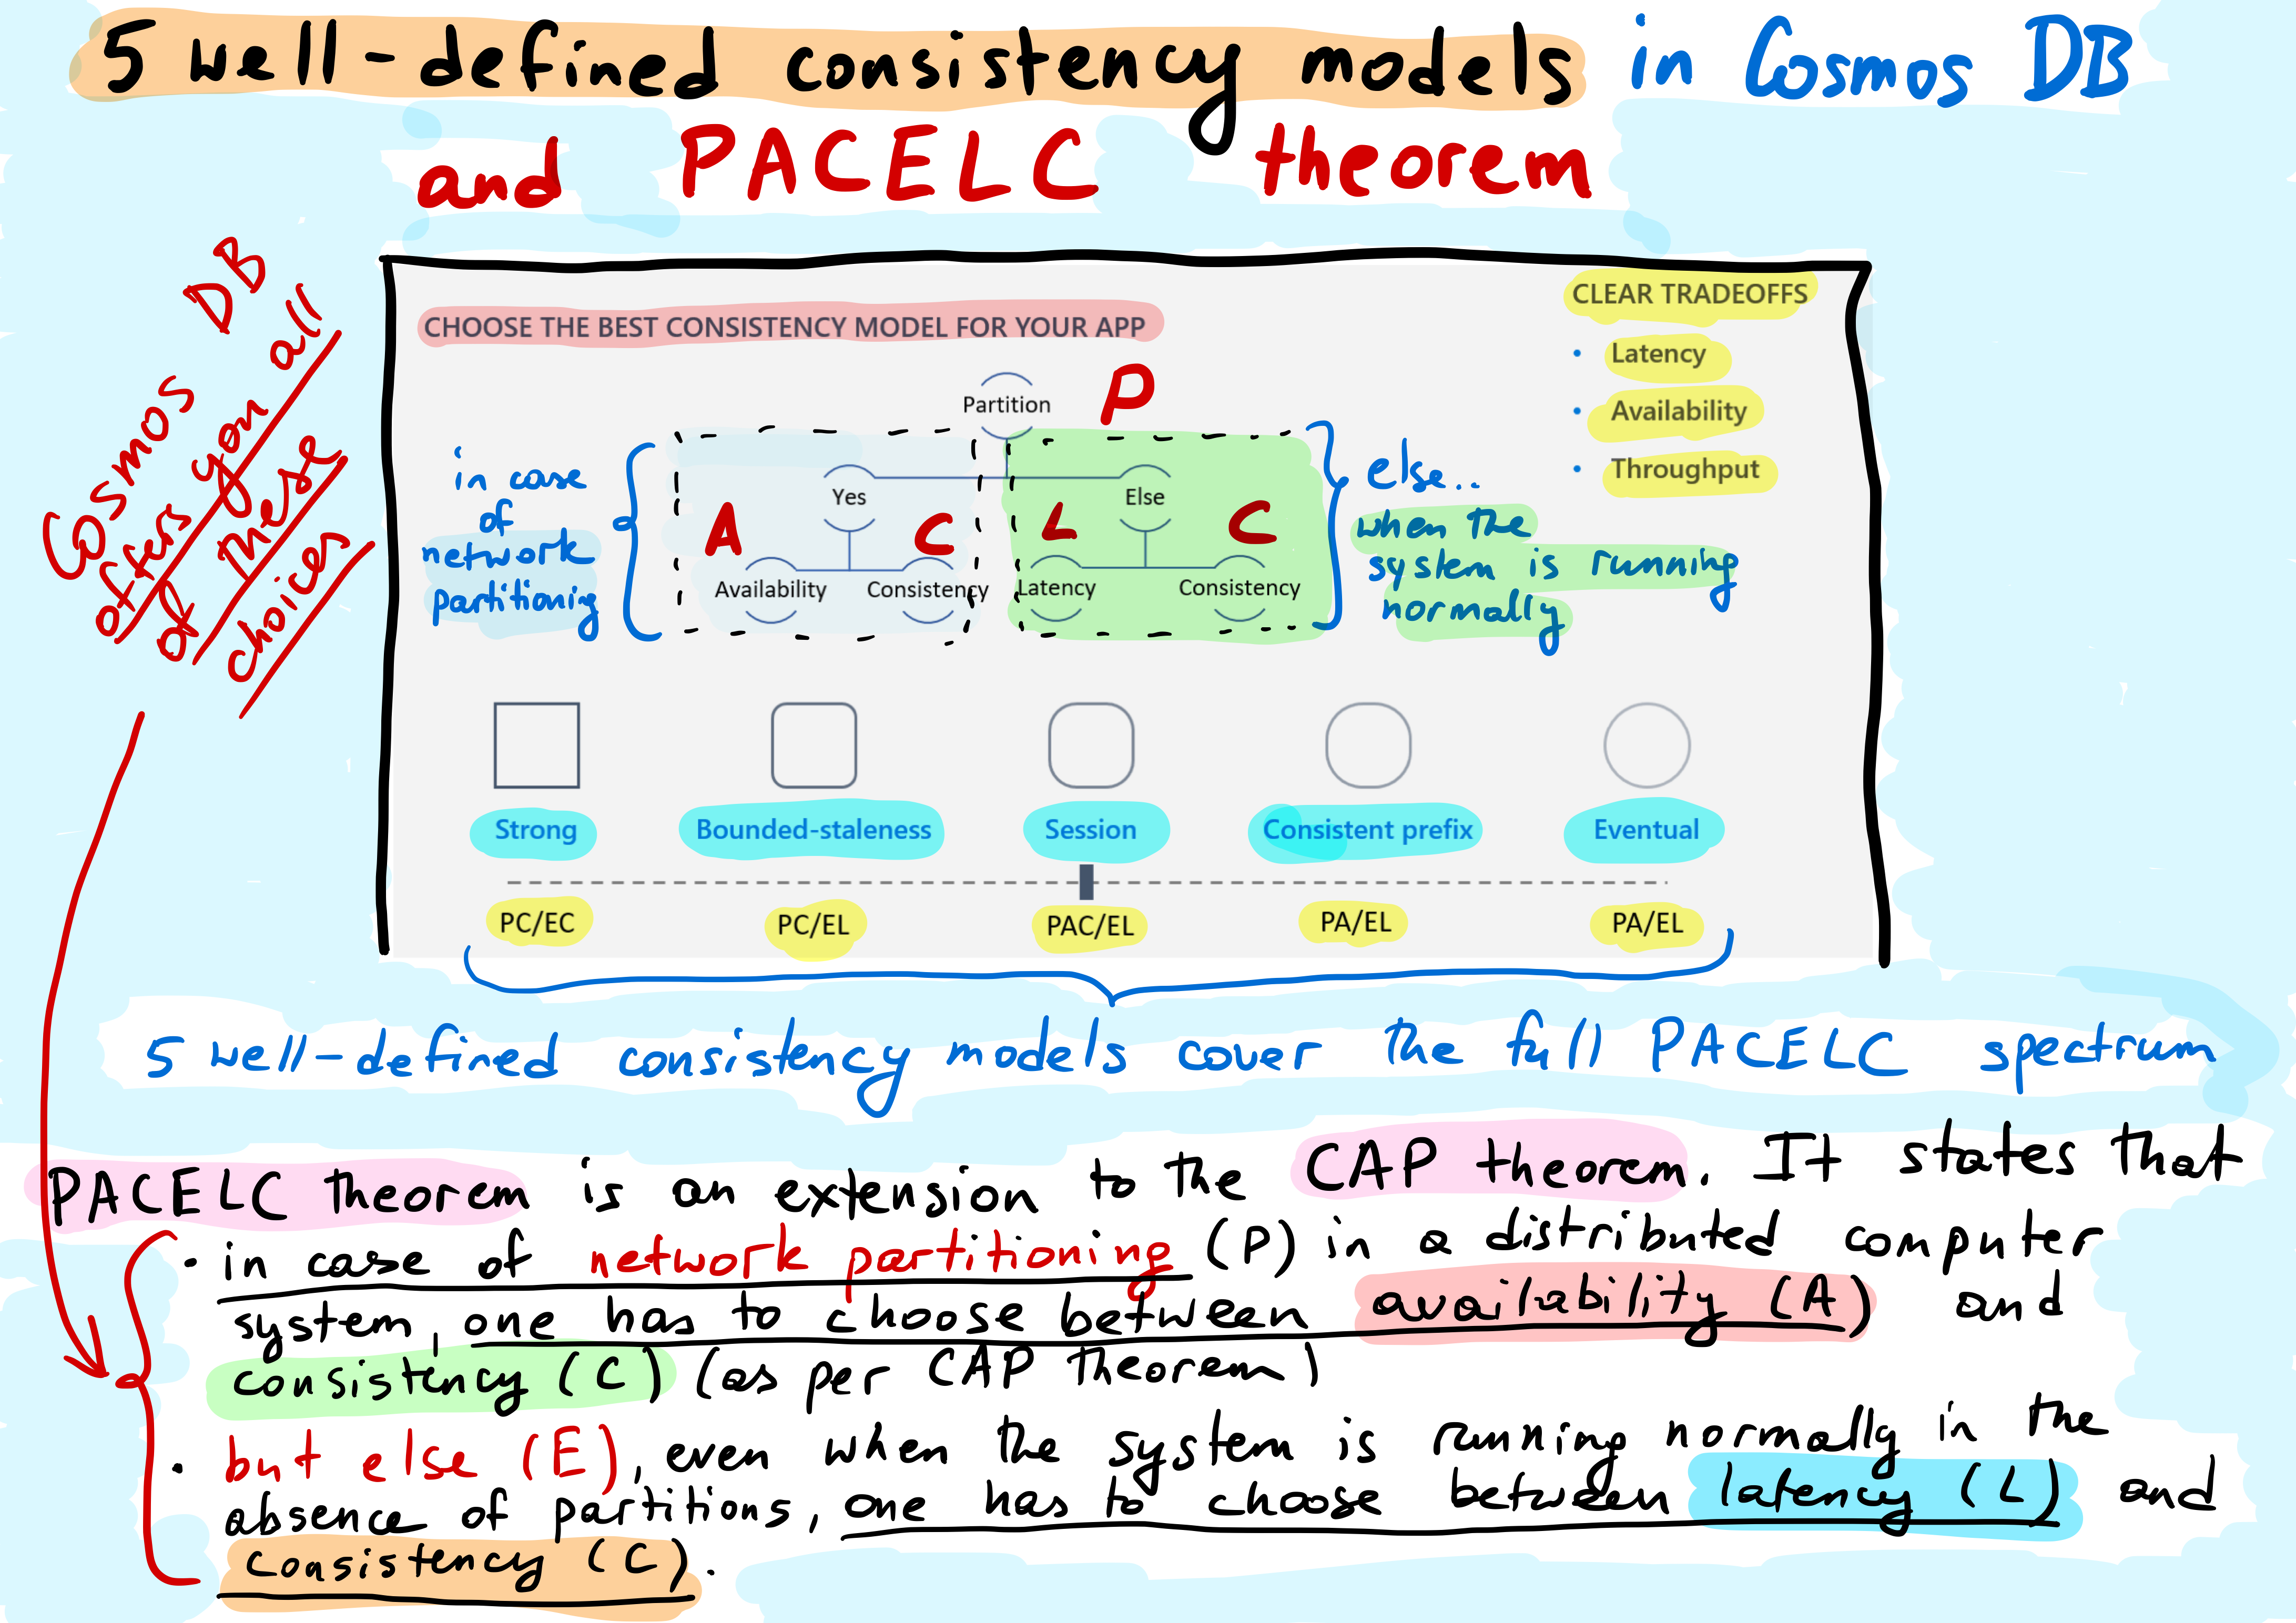 5 well-defined consistency models in Cosmos DB
and PACELC theorem
Cosmos DB
offers you all
of these
choices
CHOOSE THE BEST CONSISTENCY MODEL FOR YOUR APP
CLEAR TRADEOFFS
• Latency
• Availability
• Throughput
Partition
P
in case
of
network
partitioning
Yes
Else
A
C
L
C
Availability
Consistency
Latency
Consistency
else..
when the
system is running
normally
Strong
Bounded-staleness
Session
Consistent prefix
Eventual
PC/EC
PC/EL
PAC/EL
PA/EL
PA/EL
5 well-defined consistency models cover the full PACELC spectrum
PACELC theorem is an extension to the CAP theorem. It states that
• in case of network partitioning (P) in a distributed computer
system, one has to choose between availability (A) and
consistency (C) (as per CAP theorem)
• but else (E), even when the system is running normally in the
absence of partitions, one has to choose between latency (L) and
consistency (C).